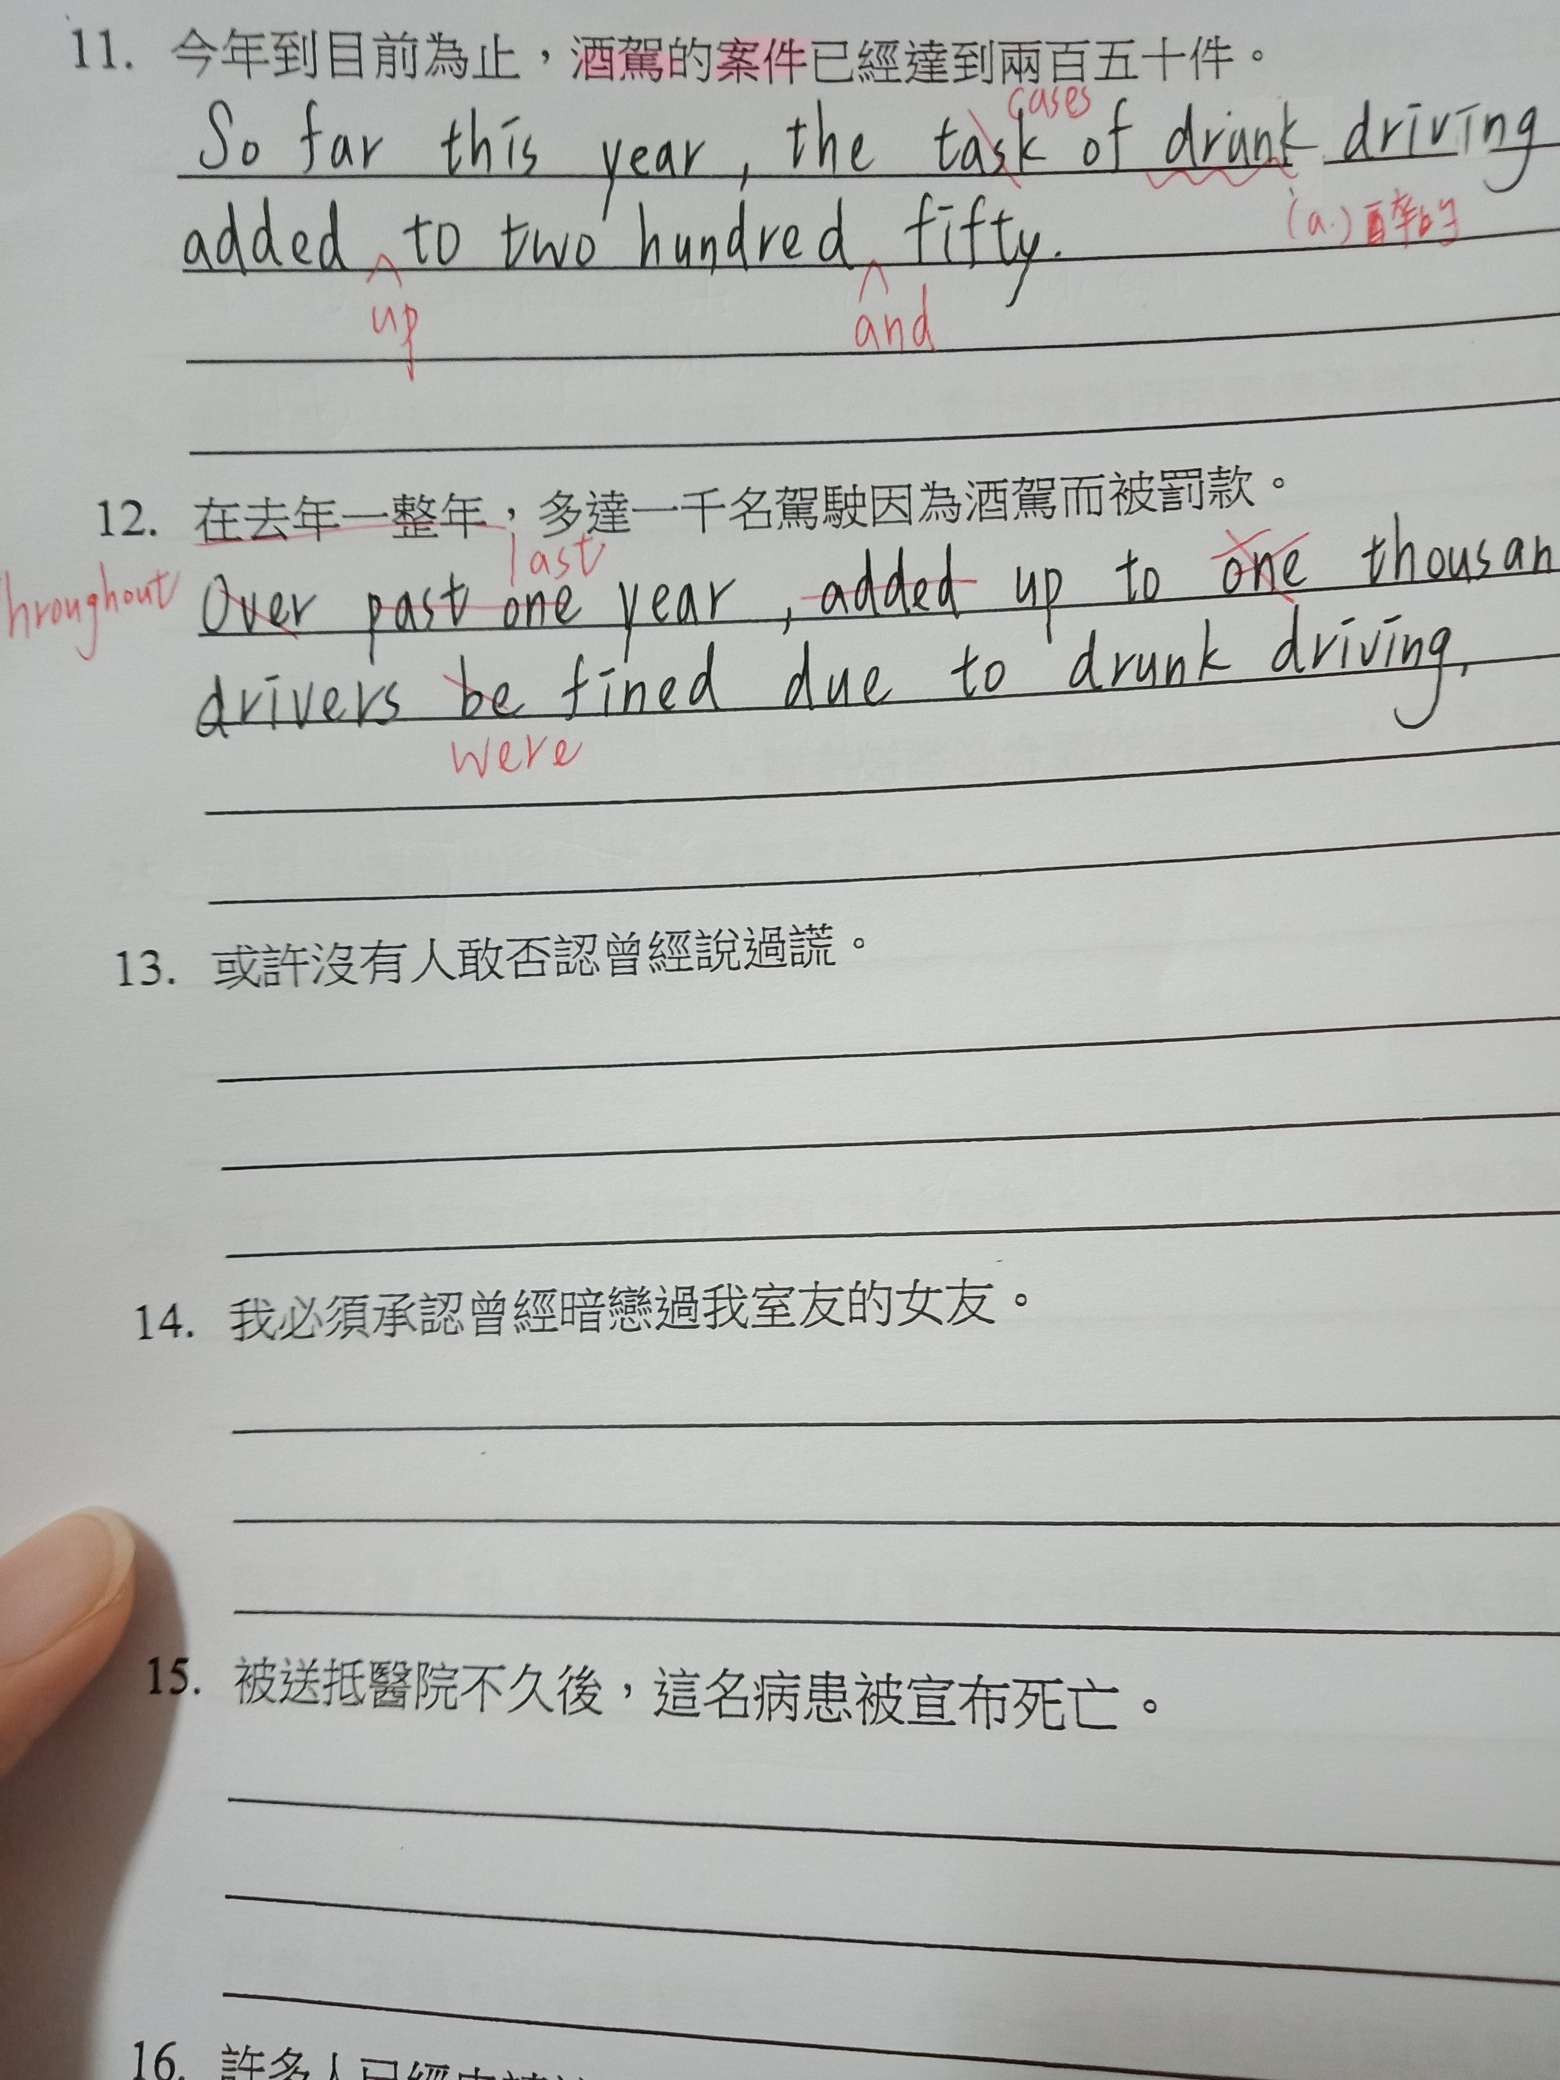 11. 今年到目前為止，酒駕的案件已經達到兩百五十件。
cases
So far this year, the task of drunk driving
(a.) 醉的
added to two hundred fifty.
up and
12. 在去年一整年，多達一千名駕駛因為酒駕而被罰款。
last
hroughout Over past one year, added up to one thousan
drivers be fined due to drunk driving.
were
13. 或許沒有人敢否認曾經說過謊。
14. 我必須承認曾經暗戀過我室友的女友。
15. 被送抵醫院不久後，這名病患被宣布死亡。
16. 許多人已經